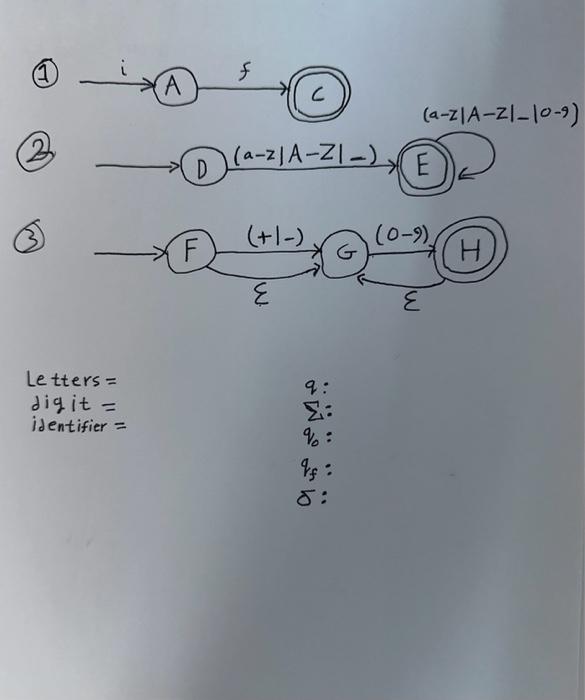 ① i A f C
② D (a-z|A-Z|_) E (a-z|A-Z|_|0-9)
③ F (+|-) G (0-9) H
ε ε
Letters =
digit =
identifier =
q:
Σ:
q₀:
q_f:
δ: